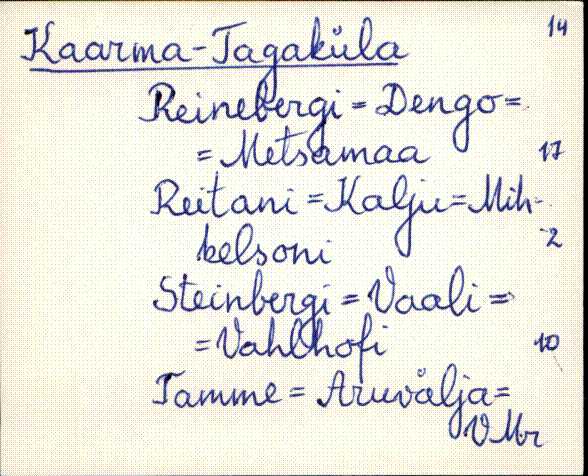 14
Kaarma-Tagaküla
Reinebergi = Dengo =
= Metsamaa 17
Reitani = Kalju = Mih-
2
kelsoni
Steinbergi = Vaali =
= Vahlhofi 10
Tamme = Aruvälja =
VMr